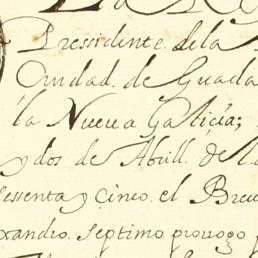 Pressidente. de la
Ciudad. de Guada
la Nueva Galiçia;
y dos de Abrill. de l
sessenta y Cinco. el Breu
xandro. septimo prorrogo